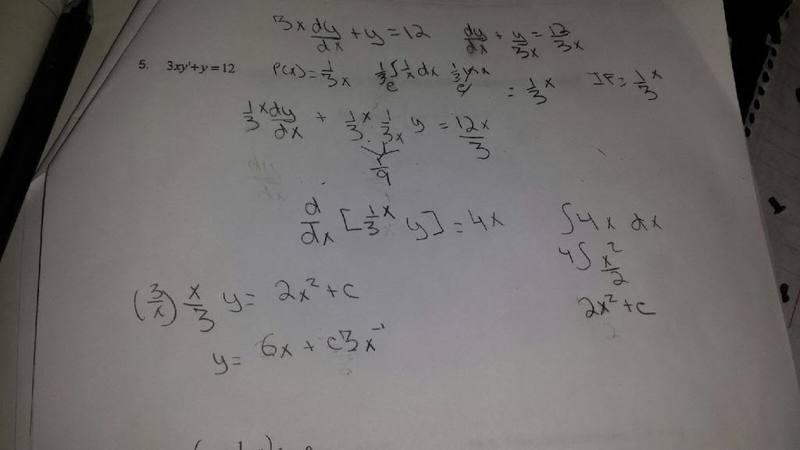 3x dy/dx + y = 12 dy/dx + y/3x = 12/3x
5. 3xy'+y=12 P(x) = 1/3x e^(1/3 ∫ 1/x dx) e^(1/3 ln x) = 1/3 x IF = 1/3 x
1/3 x dy/dx + 1/3 x · 1/3x y = 12x/3
1/9
d/dx [1/3 x y] = 4x ∫4x dx
4∫ x²/2
(3/x) x/3 y = 2x² + c 2x² + c
y = 6x + c3x⁻¹